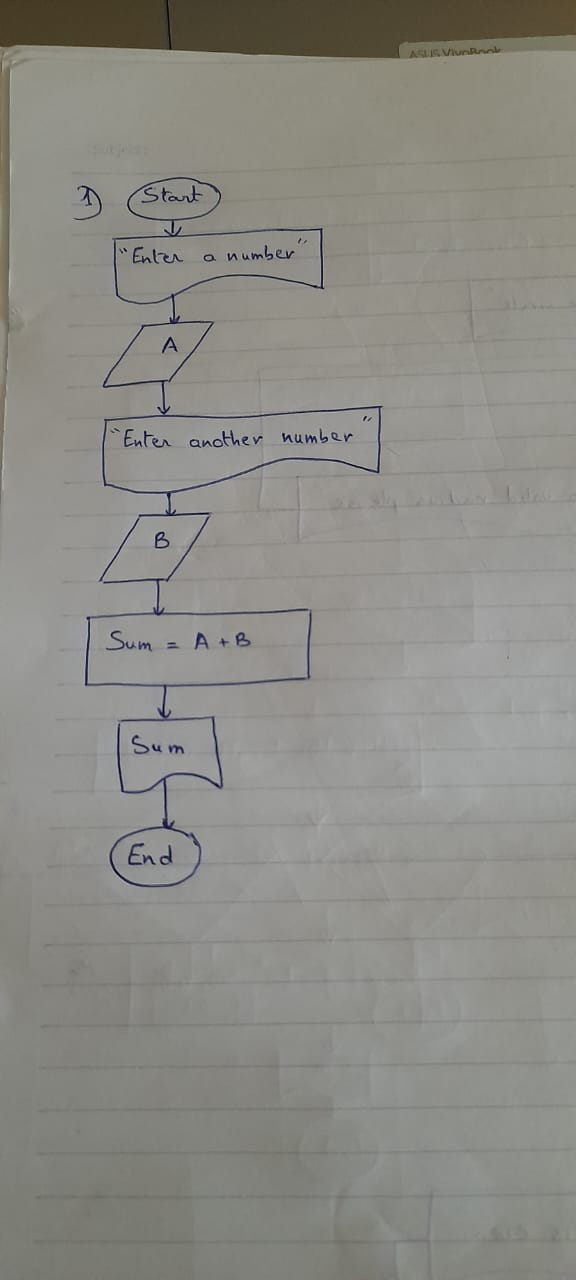 ASUS VivoBook
Subject:
1) Start
"Enter a number"
A
"Enter another number"
B
Sum = A + B
Sum
End